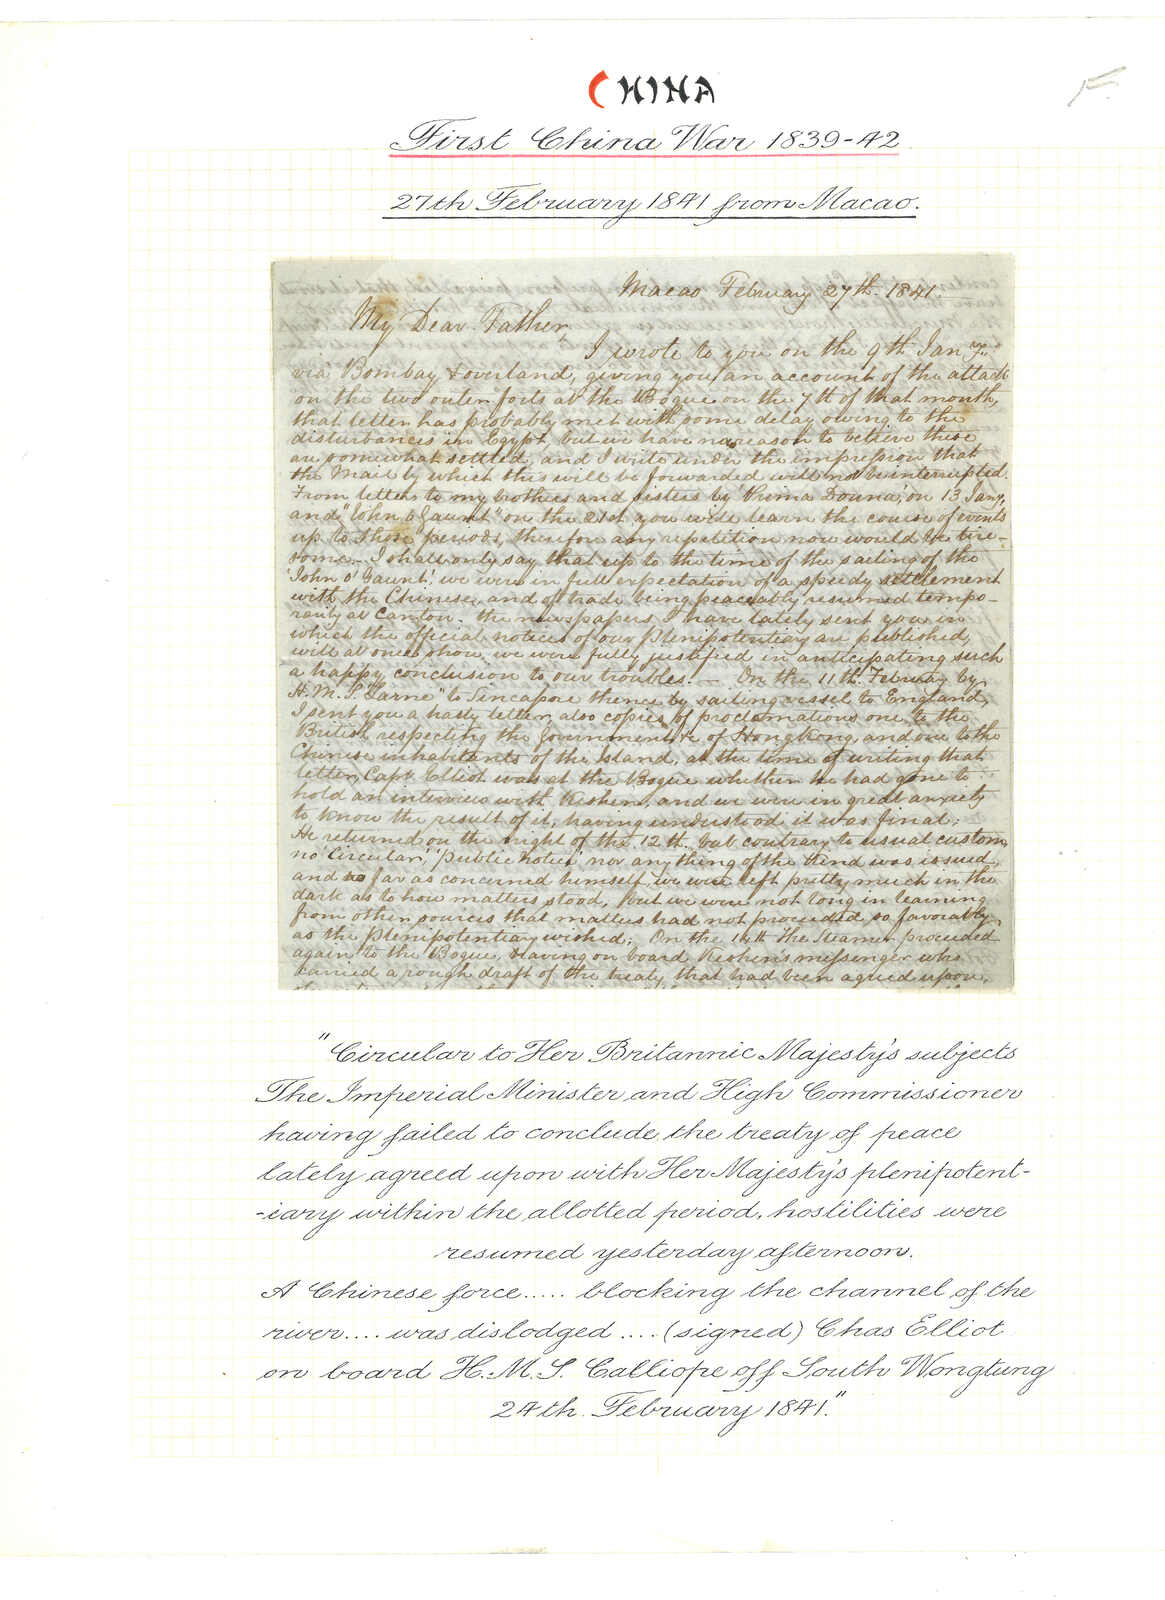 CHINA
First China War 1839-42
27th February 1841 from Macao.
Macao February 27th. 1841.
My Dear Father,
I wrote to you on the 9th Jany.
via Bombay & overland, giving you an account of the attack
on the two outer forts at the Bogue on the 7th of that month,
that letter has probably met with some delay owing to the
disturbances in Egypt, but we have no reason to believe these
are somewhat settled, and I write under the impression that
the Mail by which this will be forwarded will not be interrupted.
From letters to my brothers and sisters by 'Prima Donna', on 13 Jany,
and "John o Gaunt" on the 21st you will learn the course of events
up to those periods, therefore any repetition now would be tire-
some. - I shall only say that up to the time of the sailing of the
'John o' Gaunt', we were in full expectation of a speedy settlement
with the Chinese, and of trade being peaceably resumed tempo-
rarily at Canton. the newspapers I have lately sent you in
which the official notices of our Plenipotentiary are published,
will at once show we were fully justified in anticipating such
a happy conclusion to our troubles. - On the 11th. February by
H.M.S. Larne" to Sincapore thence by sailing vessel to England,
I sent you a hasty letter, also copies of proclamations one to the
British respecting the Government &c of HongKong, and one to the
Chinese inhabitants of the Island, at the time of writing that
letter, Capt. Elliot was at the Bogue whither he had gone to
hold an interview with Keshen, and we were in great anxiety
to know the result of it, having understood it was final;
He returned on the night of the 12th. but contrary to usual custom,
no 'Circular', 'public notice' nor anything of the kind was issued,
and so far as concerned himself, we were left pretty much in the
dark as to how matters stood, but we were not long in learning
from other sources that matters had not proceeded so favorably,
as the Plenipotentiary wished; On the 14th the Steamer proceeded
again to the Bogue, having on board Keshen's messenger who
carried a rough draft of the treaty, that had been agreed upon,
"Circular to Her Britannic Majesty's subjects
The Imperial Minister and High Commissioner
having failed to conclude the treaty of peace
lately agreed upon with Her Majesty's plenipotent-
-iary within the allotted period, hostilities were
resumed yesterday afternoon.
A Chinese force..... blocking the channel of the
river.... was dislodged .... (signed) Chas Elliot
on board H.M.S. Calliope off South Wongtung
24th. February 1841."